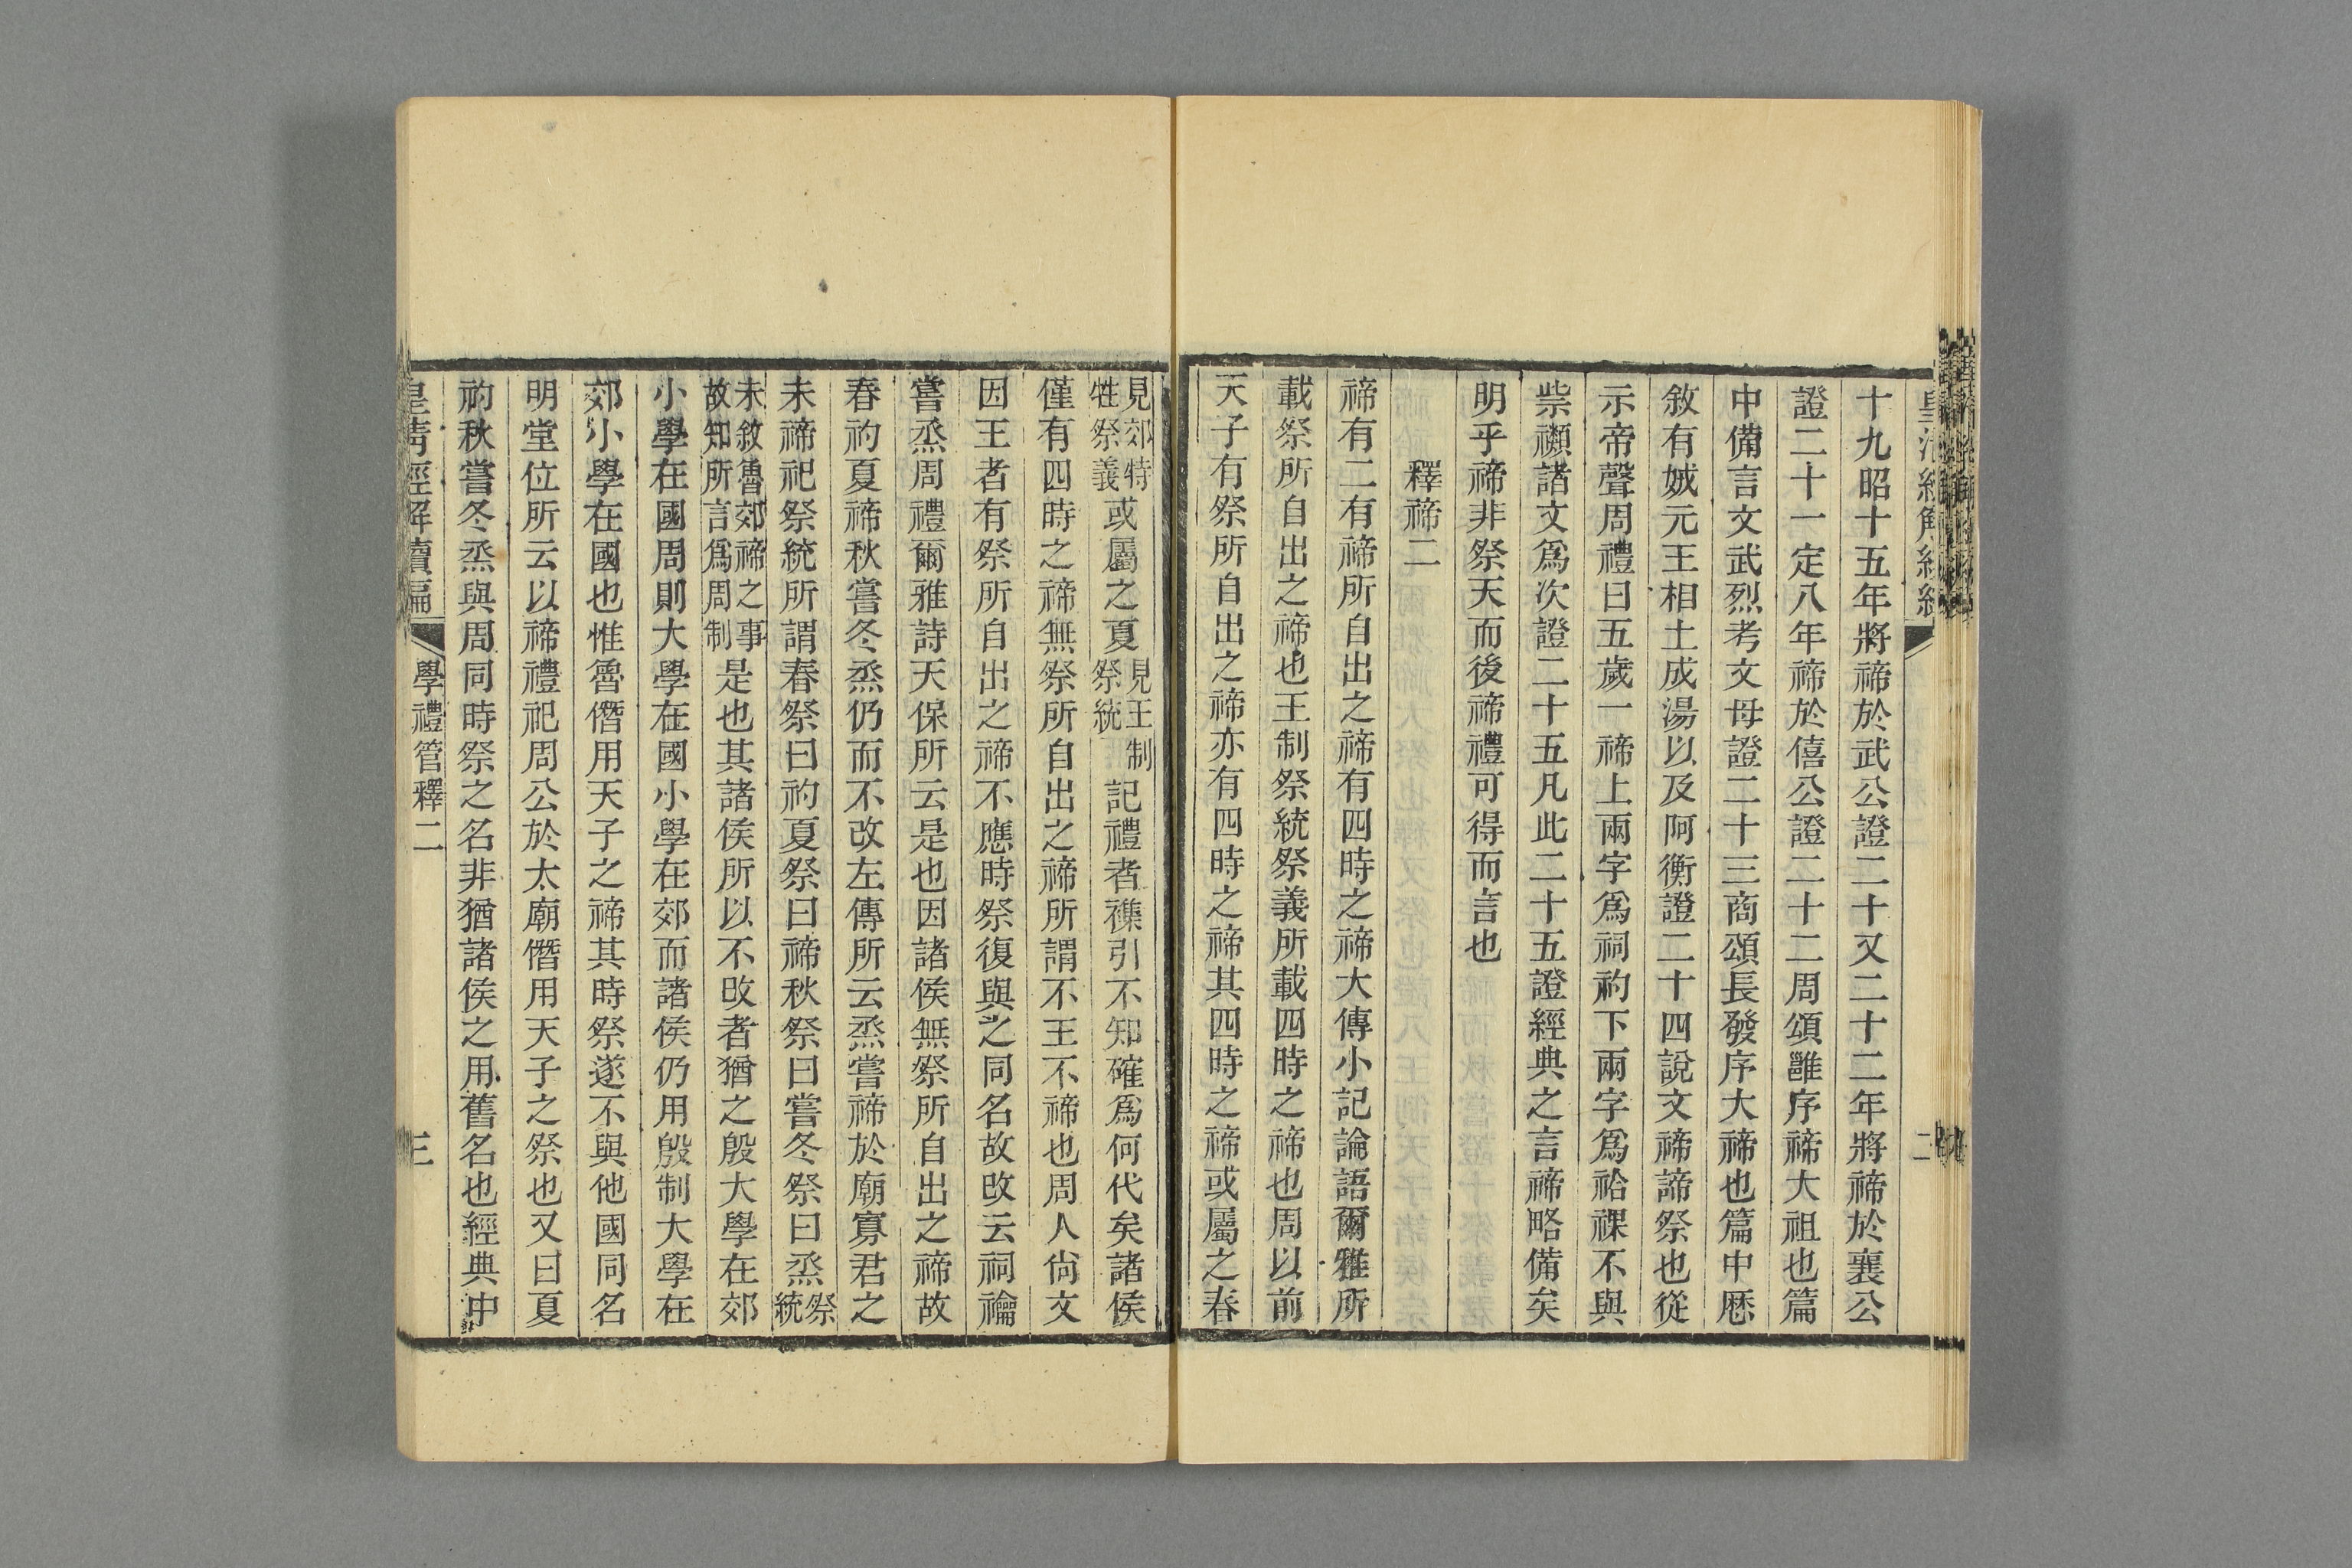 十九昭十五年將禘於武公證二十又二十二年將禘於襄公
證二十一定八年禘於僖公證二十二周頌雝序禘大祖也篇
中備言文武烈考文母證二十三商頌長發序大禘也篇中歷
敘有娀元王相土成湯以及阿衡證二十四說文禘諦祭也從
示帝聲周禮曰五歲一禘上兩字爲祠礿下兩字爲祫祼不與
祡禷諸文爲次證二十五凡此二十五證經典之言禘略備矣
明乎禘非祭天而後禘禮可得而言也
釋禘二
禘有二有禘所自出之禘有四時之禘大傳小記論語爾雅所
載祭所自出之禘也王制祭統祭義所載四時之禘也周以前
天子有祭所自出之禘亦有四時之禘其四時之禘或屬之春
見郊特
牲祭義
或屬之夏
見王制
祭統
記禮者襍引不知確爲何代矣諸侯
僅有四時之禘無祭所自出之禘所謂不王不禘也周人尙文
因王者有祭所自出之禘不應時祭復與之同名故改云祠禴
嘗烝周禮爾雅詩天保所云是也因諸侯無祭所自出之禘故
春礿夏禘秋嘗冬烝仍而不改左傳所云烝嘗禘於廟寡君之
未禘祀祭統所謂春祭曰礿夏祭曰禘秋祭曰嘗冬祭曰烝
祭
統
未敘魯郊禘之事
故知所言爲周制
是也其諸侯所以不改者猶之殷大學在郊
小學在國周則大學在國小學在郊而諸侯仍用殷制大學在
郊小學在國也惟魯僭用天子之禘其時祭遂不與他國同名
明堂位所云以禘禮祀周公於太廟僭用天子之祭也又曰夏
礿秋嘗冬烝與周同時祭之名非猶諸侯之用舊名也經典中
皇淸經解續編
學禮管釋二
三